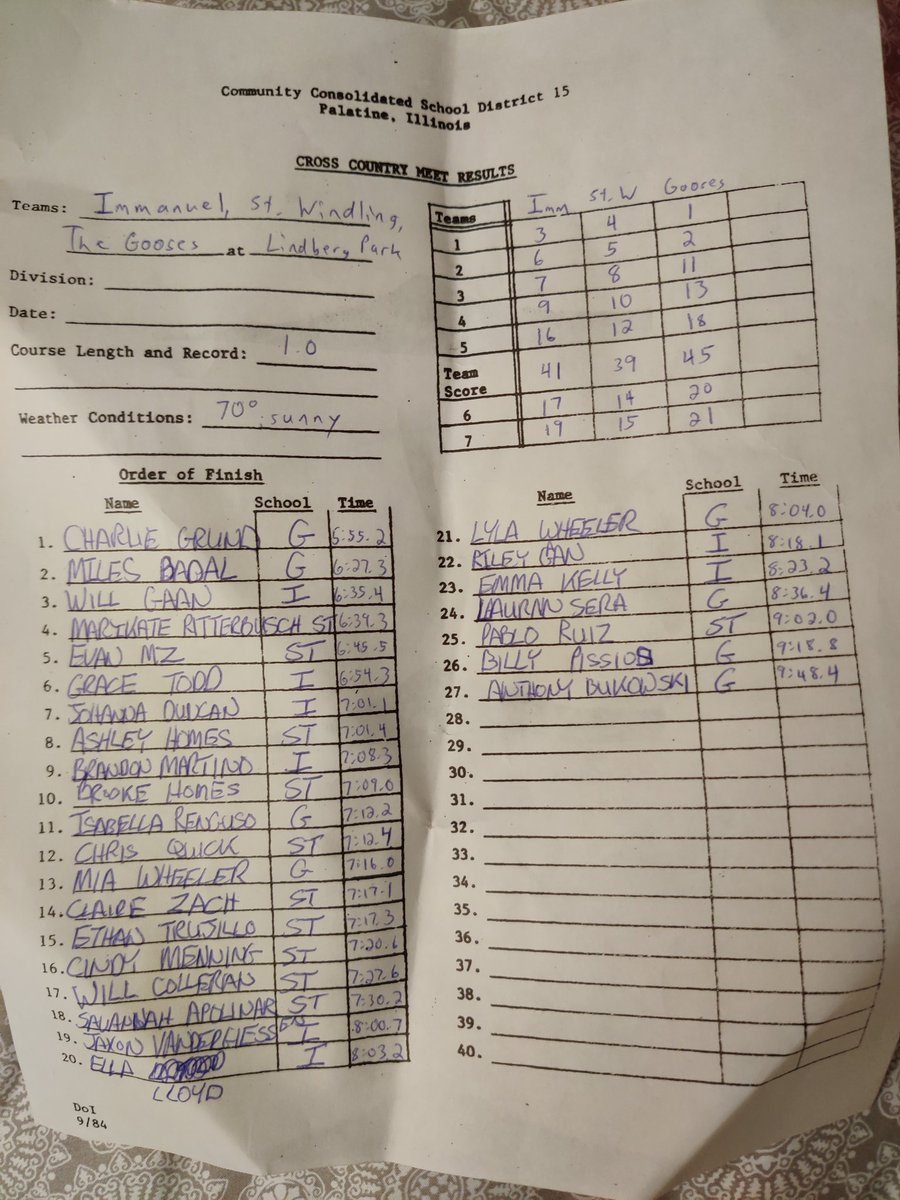 Community Consolidated School District 15
Palatine, Illinois
CROSS COUNTRY MEET RESULTS
Teams: Immanuel, St. Windling,
The Gooses at Lindberg Park
Division:
Date:
Course Length and Record: 1.0
Weather Conditions: 70° sunny
Teams Imm St. W Gooses
1 3 4 1
2 6 5 2
3 7 8 11
4 9 10 13
5 16 12 18
Team Score 41 39 45
6 17 14 20
7 19 15 21
Order of Finish
Name School Time
1. CHARLIE GRUND G 5:55.2
2. MILES BADAL G 6:27.3
3. WILL GAAN I 6:35.4
4. MARIKATE RITTERBUSCH ST 6:39.3
5. EVAN MZ ST 6:45.5
6. GRACE TODD I 6:54.3
7. JOHANNA DUNCAN I 7:01.1
8. ASHLEY HOMES ST 7:01.4
9. BRANDON MARTINO I 7:08.3
10. BROOKE HOMES ST 7:09.0
11. ISABELLA RENGUSO G 7:12.2
12. CHRIS QUICK ST 7:12.4
13. MIA WHEELER G 7:16.0
14. CLAIRE ZACH ST 7:17.1
15. ETHAN TRUJILLO ST 7:17.3
16. CINDY MENNING ST 7:20.6
17. WILL COLLERAN ST 7:27.6
18. SAVANNAH APOLINAR ST 7:30.2
19. JAXON VANDERGIESSEN I 8:00.7
20. ELLA I 8:03.2
LLOYD
Name School Time
21. LYLA WHEELER G 8:04.0
22. RILEY GAN I 8:18.1
23. EMMA KELLY I 8:23.2
24. LAURAN SERA G 8:36.4
25. PABLO RUIZ ST 9:02.0
26. BILLY PISSIOS G 9:18.8
27. ANTHONY BUKOWSKI G 9:48.4
28.
29.
30.
31.
32.
33.
34.
35.
36.
37.
38.
39.
40.
DoI
9/84